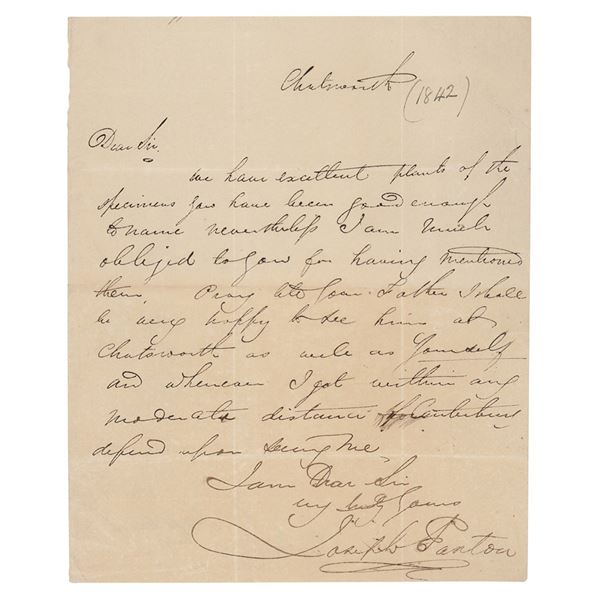 Chatsworth (1842)
Dear Sir,
we have excellent plants of the
specimens you have been good enough
to name nevertheless I am much
obliged to you for having mentioned
them. Pray Father I shall
be very happy to see him at
Chatsworth as well as yourself
and whenever I get within any
moderate distance of Canterbury
depend upon seeing me,
I am Dear Sir
my yours
Joseph Paxton